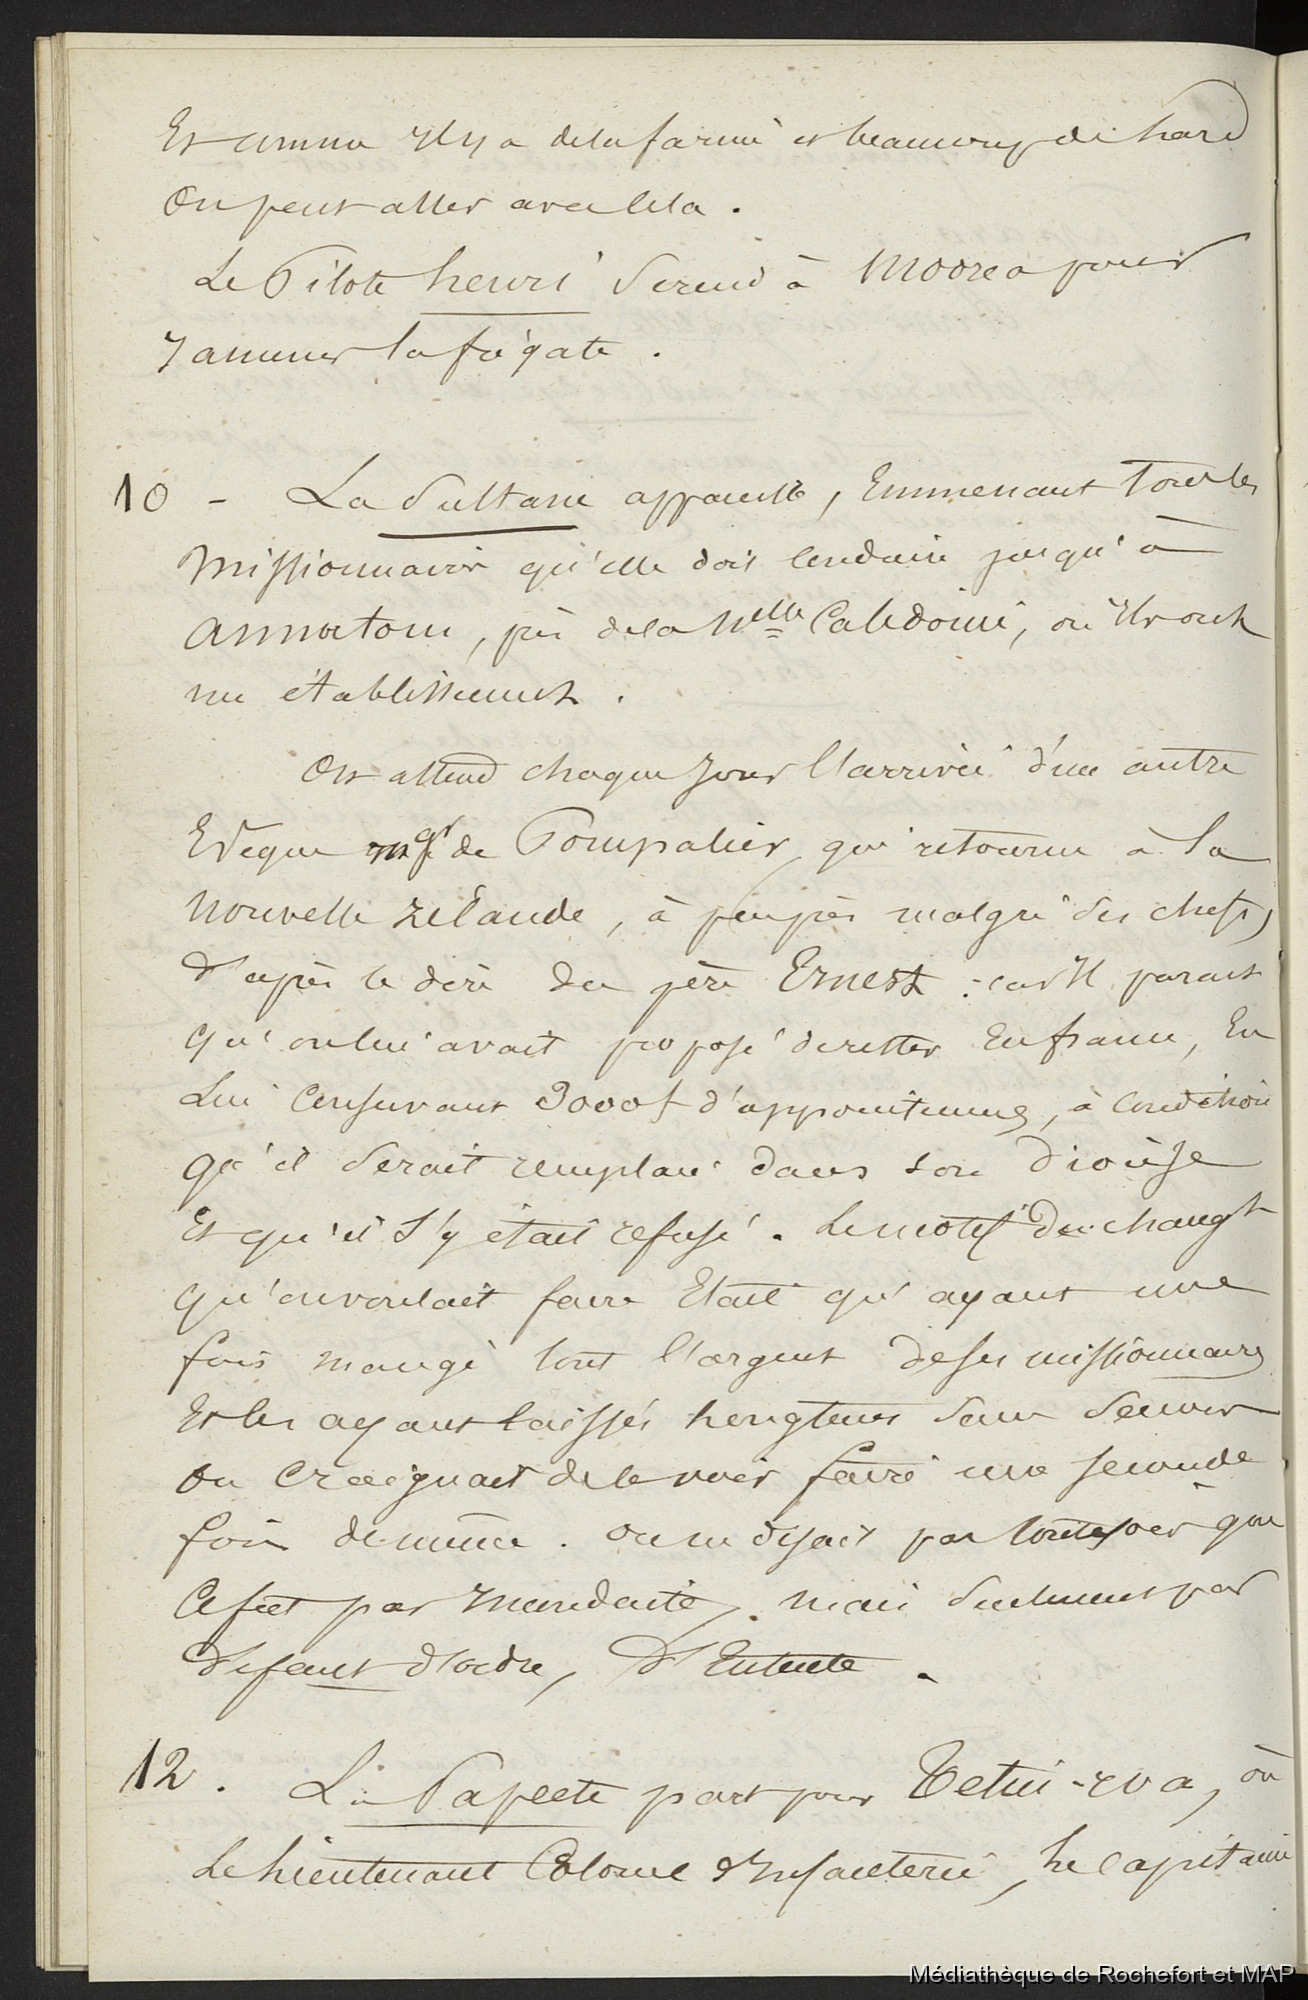 Et comme il y a de la farine et beaucoup de lard
On peut aller avec cela.
Le Pilote henri Se rend à Moorea pour
y amener la frégate.
10 - La Sultane appareille, Emmenant tous les
Missionnaires qu'elle doit Conduire jusqu'à
Annatom, près de la Nelle Calédonie, où Ils ont
un établissement.
On attend chaque Jour l'arrivée d'une autre
Evêque Mgr de Pompalier, qui retourne à la
Nouvelle Zélande, à peu près malgré des chefs,
d'après le dire du père Ernest : car Il parait
qu'on lui avait proposé de rester En france, En
Lui Conservant 3000f d'appointements, à Condition
qu'il Serait remplacé dans son Diocèse
Et qu'il S'y était refusé. Le motif du changt
qu'on voulait faire Etait qu'ayant une
fois mangé tout l'argent de ses missionnaires
Et les ayant laissés longtems sans Secours
On Craignait de le voir faire une Seconde
fois de même. On ne disait pas toutefois que
Ce fut par Mondanité, mais Seulement par
défaut d'ordre, d'Entente.
12. Le Papeete part pour Tetui-roa, où
Le Lieutenant Colonel d'Infanterie, Le Capitaine
Médiathèque de Rochefort et MAP